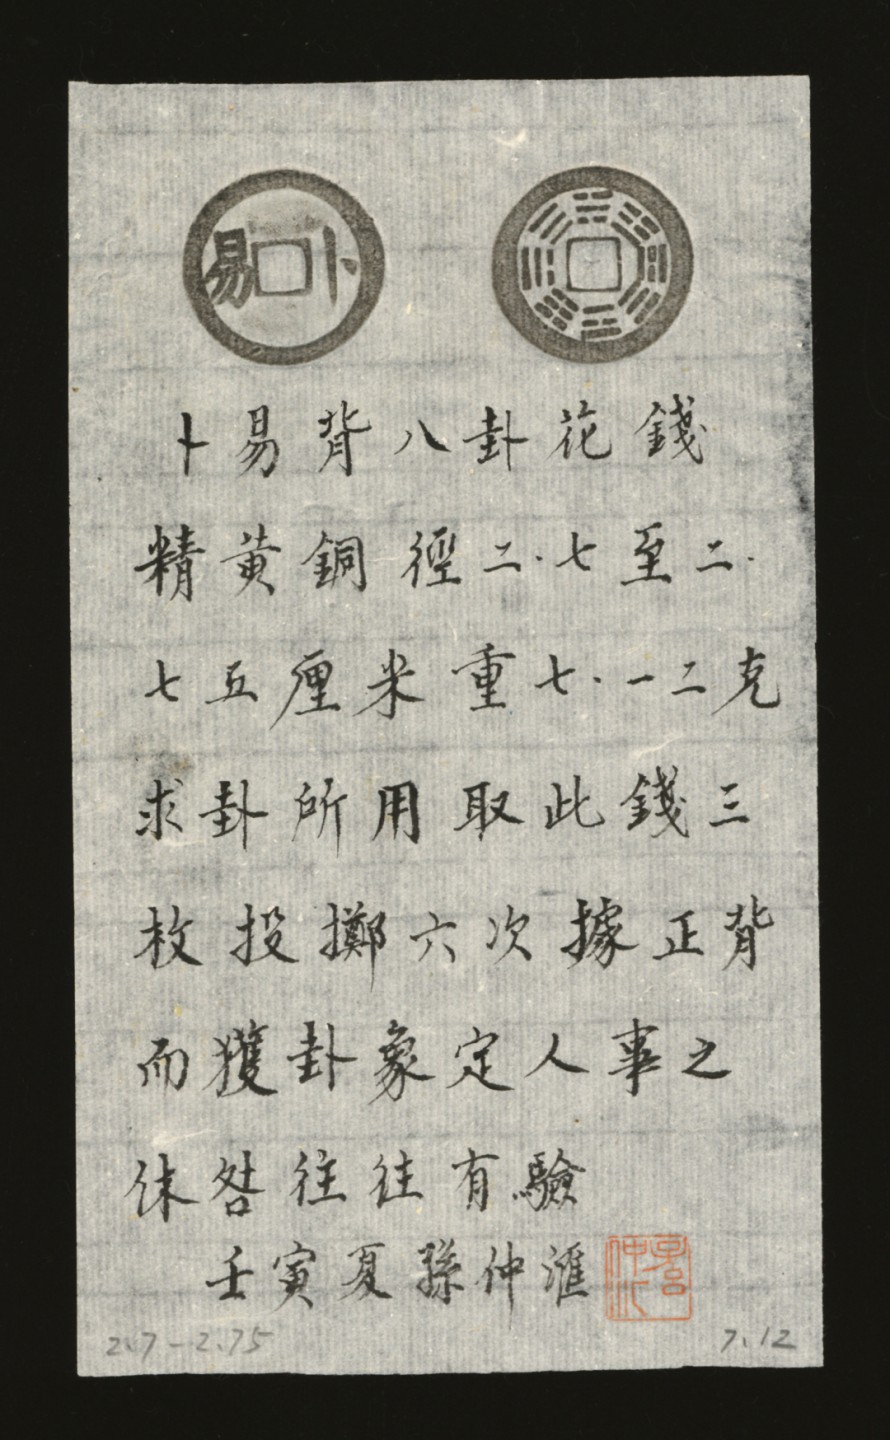 卜易
卜易背八卦花錢
精黄銅徑二.七至二.
七五厘米重七.一二克
求卦所用取此錢三
枚投擲六次據正背
而獲卦象定人事之
休咎往往有驗
壬寅夏孫仲滙
2.7-2.75
7.12